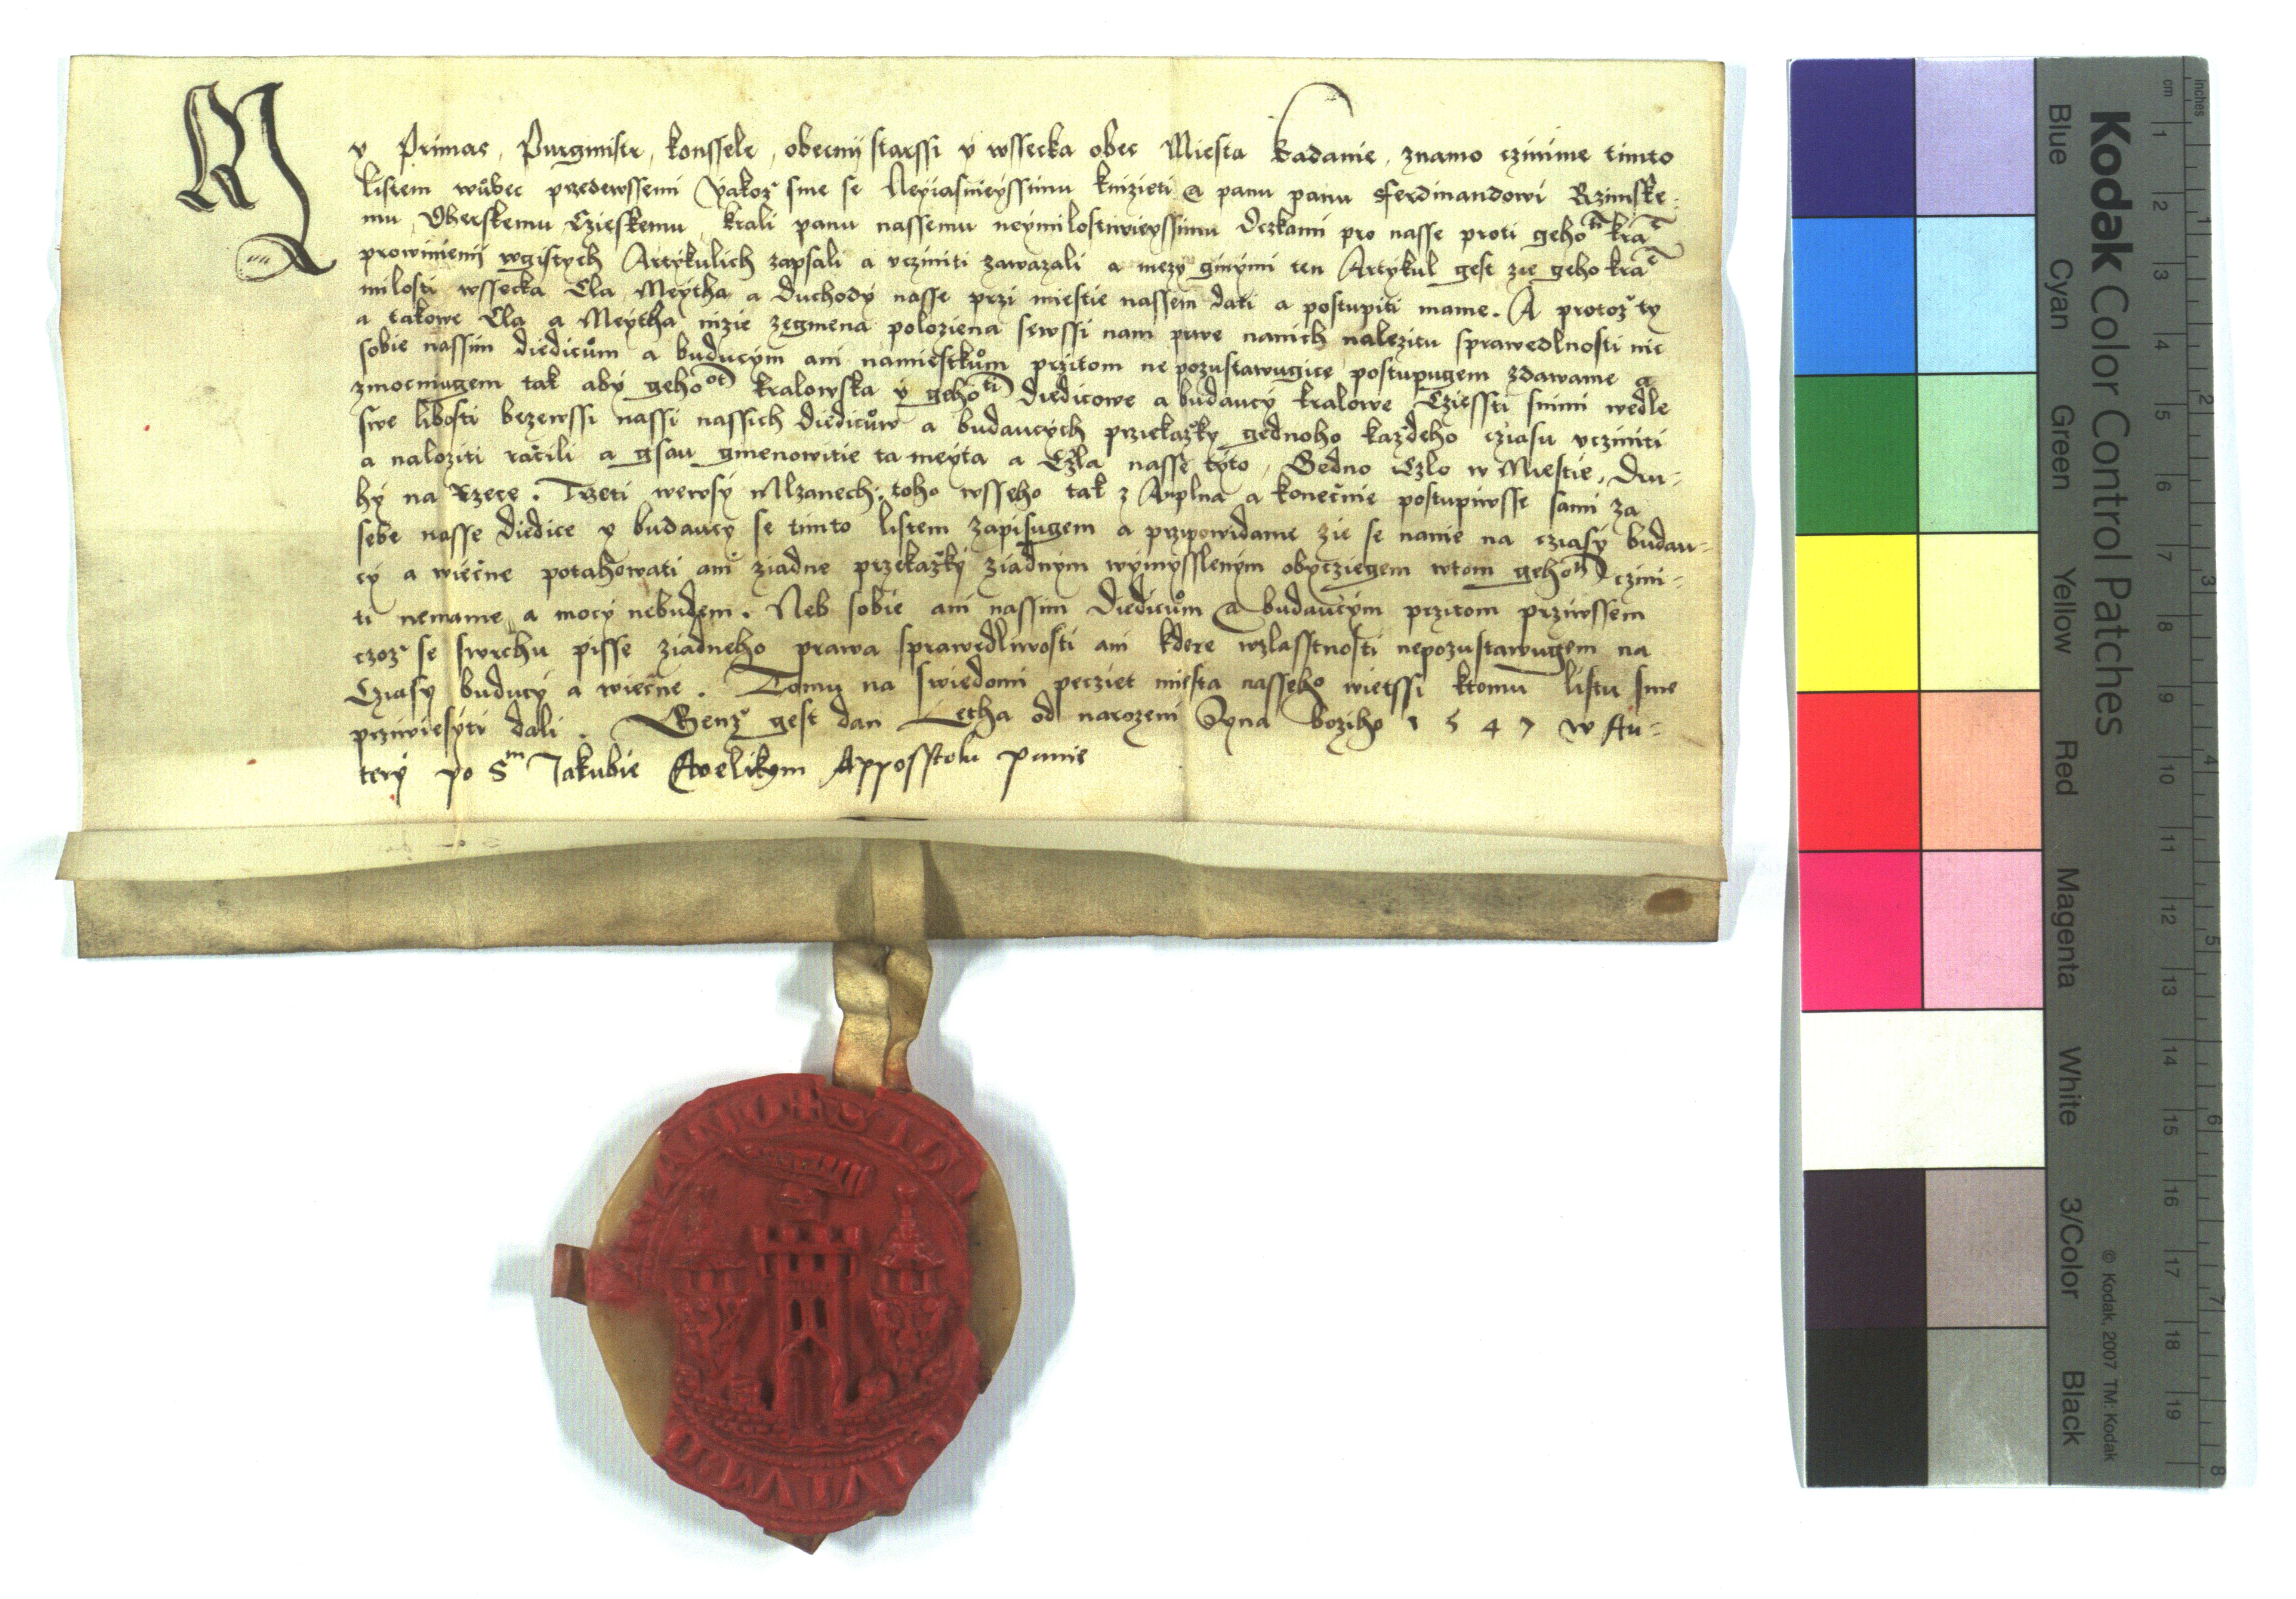 My Primas, Purgmistr, konssele, obecnij starssi y wssecka obec Miesta Kadanie, znamo cziníme tímto
listem wůbec przedewssemi Yakoz sme se Neyiasnieyssimu knizieti a panu panu Fferdinandowi Rzimske-
mu Vherskemu Czieskemu krali panu nassemu neymilostiwieyssimu Vczkami pro nasse proti geho kra
prowinienij wgistych Artykulich zapsali a vcziniti zawazali a mezy ginymi ten Artykul gest zie geho kra
milosti wssecka Cla Meytha a duchody nasse przi miestie nassem dati a postupiti mame. A protoz ty
a takowe Cla a Meytha nizie zegmena poloziena sewssi nam prwe nanich nalezitu sprawedlnosti nic
sobie nassim diedicům a buducym ani namiestkům przitom nepozustawugice postupugem zdawame a
zmocniugem tak aby geho kralowska y geho diedicowe a budaucy kralowe Cziessti snimi wedle
swe libosti bezewssi nassi nassich diedicůw a budaucych przekazky gednoho kazdeho cziasu vcziniti
a naloziti račili a gsau gmenowitie ta meyta a Czla nasse tyto, Gedno Czlo w Miestie, Dru-
hy na Rzece. Trzeti wewsy Mlzanech. toho wsseho tak z Auplna a konečnie postupiwsse sami za
sebe nasse diedice y budaucy se tímto listem zapisugem a przipowidame zie se nanie na cziasy budau-
cy a wiečne potahowati ani ziadne przekazky ziadnym wymysslenym obycziegem wtom geho czini-
ti nemame a mocy nebudem. Neb sobie ani nassim diedicům a budaucym przitom prziwssem
czoz se swrchu pisse ziadneho prawa sprawedliwosti ani kdere wzlasstnosti nepozustawugem na
Cziasy buducy a wiečne. Tomu na swiedomi pecziet miesta nasseho wietssi ktomu listu sme
prziwiesyti dali. Genz gest dan Letha od narozeni Syna boziho 1547 w Au-
tery po Sm Jakubie Welikym Appossstolu Panie
Kodak Color Control Patches
Blue Cyan Green Yellow Red Magenta White 3/Color Black
© Kodak, 2007 TM: Kodak
cm 1 2 3 4 5 6 7 8 9 10 11 12 13 14 15 16 17 18 19
inches 1 2 3 4 5 6 7 8